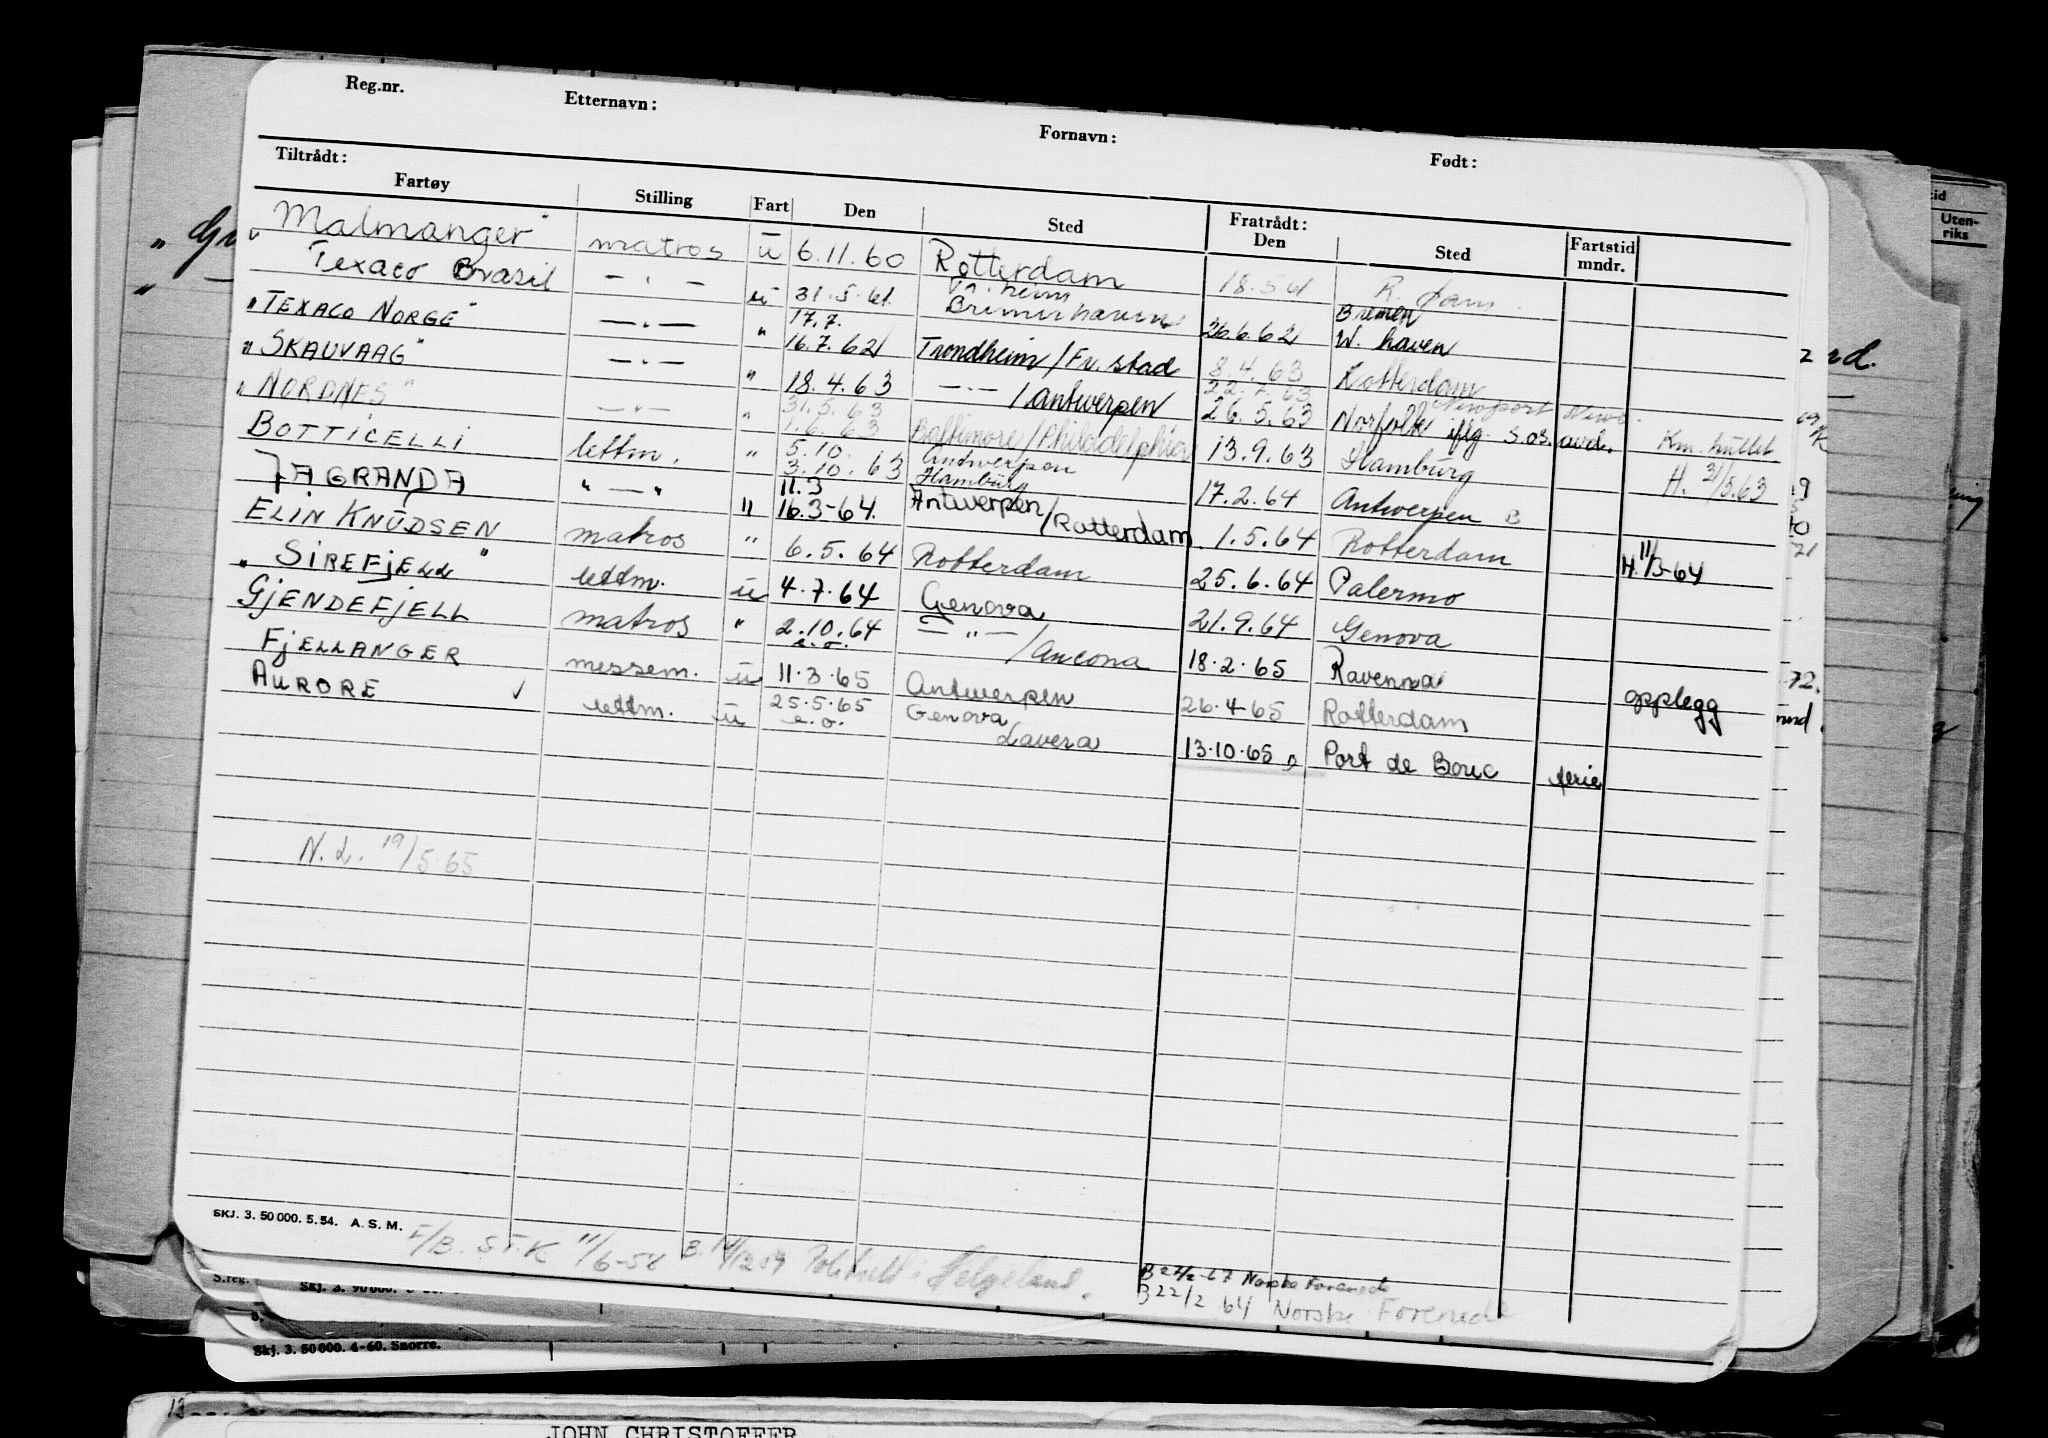 Reg.nr. Etternavn: Fornavn: Født:
Tiltrådt: Fratrådt:
Fartøy Stilling Fart Den Sted Den Sted Fartstid mndr.
"Malmanger" matros u 6.11.60 Rotterdam 18.5.61 R. dam
Texaco Brasil — " — u 31.5.61. Tr. heim Bremerhaven 26.6.62 Bremen W. haven
"TEXACO NORGE" — " — " 17.7. 16.7.62 Trondheim/Fr. stad 8.4.63 Rotterdam
"SKAUVAAG" — " — " 18.4.63 — " — / Antwerpen 22.7.63 26.5.63 Newport News Norfolk iflg. S.os. avd.
"NORDNES" — " — " 31.5.63 1.6.63 Baltimore/Philadelphia 13.9.63 Hamburg Km. huttet H. 31/5.63
BOTTICELLI lettm. " 5.10. 3.10.63 Antwerpen Hamburg 17.2.64 Antwerpen B
JAGRANDA " — " " 11.3 16.3-64. Antwerpen/Rotterdam 1.5.64 Rotterdam H. 11/3-64
ELIN KNUDSEN matros " 6.5.64 Rotterdam 25.6.64 Palermo
"SIREFJELL" lettm. u 4.7.64 Genova 21.9.64 Genova
GJENDEFJELL matros " 2.10.64 e.o. — " — / Ancona 18.2.65 Ravenna opplegg
FJELLANGER messem. u 11.3.65 Antwerpen 26.4.65 Rotterdam
AURORE lettm. u 25.5.65 e.o. Genova Lavera 13.10.65 Port de Bouc ferie
N.L. 19/5.65
SKJ. 3. 50 000. 5. 54. A. S. M.
B. 14/12 59 Helgeland.
B 27/2-67 Norske Forenede
B 22/2 64 Norske Forenede
S.reg.
Skj. 3. 90 000.
Skj. 3. 50 000. 4-60. Snorre.
Uten-
riks
72.
JOHN CHRISTOFFER